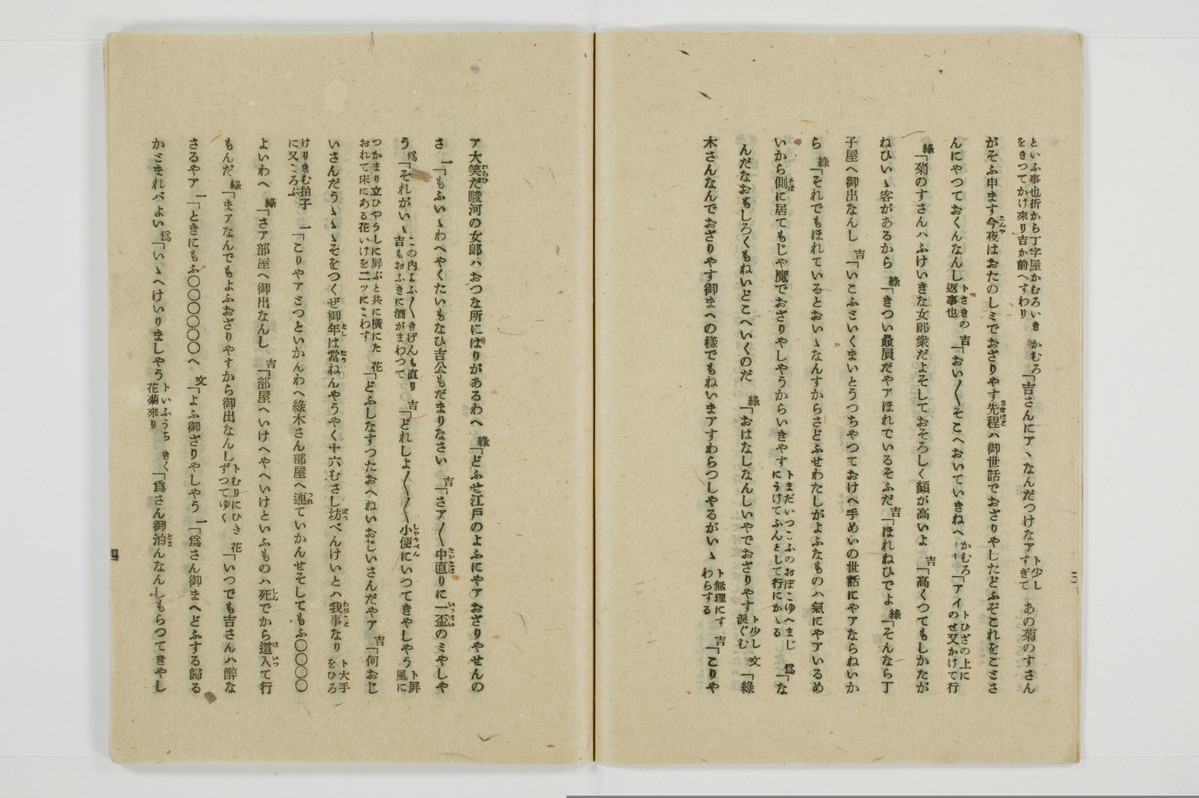 といふ事也折から丁字屋かむろいき かむろ「吉さんにアヽなんだつけなア ト少しすぎて あの菊のすさん
をきつてかけ來り吉か前へすわり
がそふ申ます今夜はおたのしミでおざりやす先程ハ御世話でおざりやしたどふぞこれをこミさ
んにやつておくんなんし トさきの返事也 吉「おい〳〵そこへおいていきねへ かむろ「アイ トひざの上にのせ又かけて行
綠「菊のすさんハふけいきな女郎衆だよそしておそろしく顔が高いよ 吉「高くつてもしかたが
ねひいゝ客があるから 綠「きつい最屓だやアほれているそふだ 吉「ほれねひでよ 綠「そんなら丁
子屋へ御出なんし 吉「いこふミいくまいとうつちやつておけへ手めいの世話にやアならねいか
ら 綠「それでもほれているとおいゝなんすからさどふせわたしがよふなものハ氣にやアいるめ
いから側に居てもじや魔でおざりやしやうからいきやす トまだいつこふのおぼこゆへまじにうけてふんとして行にかゝる 爲「な
んだなおもしろくもねいどこへいくのだ 綠「おはなしなんしいやでおざりやす ト少し涙ぐむ 文「綠
木さんなんでおざりやす御まへの樣でもねいまアすわらつしやるがいゝ ト無理にすわらする 吉「こりや
ア大笑だ駿河の女郎ハおつな所にばりがあるわへ 綠「どふせ江戸のよふにやアおざりやせんの
さ 一「もふいゝわへやくたいもなひ吉公もだまりなさい 吉「さア〳〵中直りに一盃のミやしや
う 爲「それがいゝ この内よふ〳〵きげんも直り吉もおふきに酒がまわつて 吉「どれしよ〳〵〳〵小便にいつてきやしやう ト屏風に
つかまり立ひやうしに屏ぶと共に横にた
おれて床にある花いけを二ッにこわす 花「どふしなすつたおへねいおじいさんだやア 吉「何おじ
いさんだうゝゝそをつくぜ御年は當ねんやうやく十六むさし坊べんけいとハ我事なり ト大手をひろ
けりきむ拍子に又ころぶ 一「こりやアミつといかんわへ綠木さん部屋へ連ていかんせそしてもふ〇〇〇〇
よいわへ 綠「さア部屋へ御出なんし 吉「部屋へいけへやへいけといふものハ死でから這入て行
もんだ 綠「まアなんでもよふおざりやすから御出なんし トむりにひきずつてゆく 花「いつでも吉さんハ醉な
さるやア 一「ときにもふ〇〇〇〇〇〇へ 文「よふ御ざりやしやう 一「爲さん御まへどふする歸る
かミまれバよい 爲「いゝへけいりましやう トいふうち花菊來り きく「爲さん御泊んなんしもらつてきやし
四